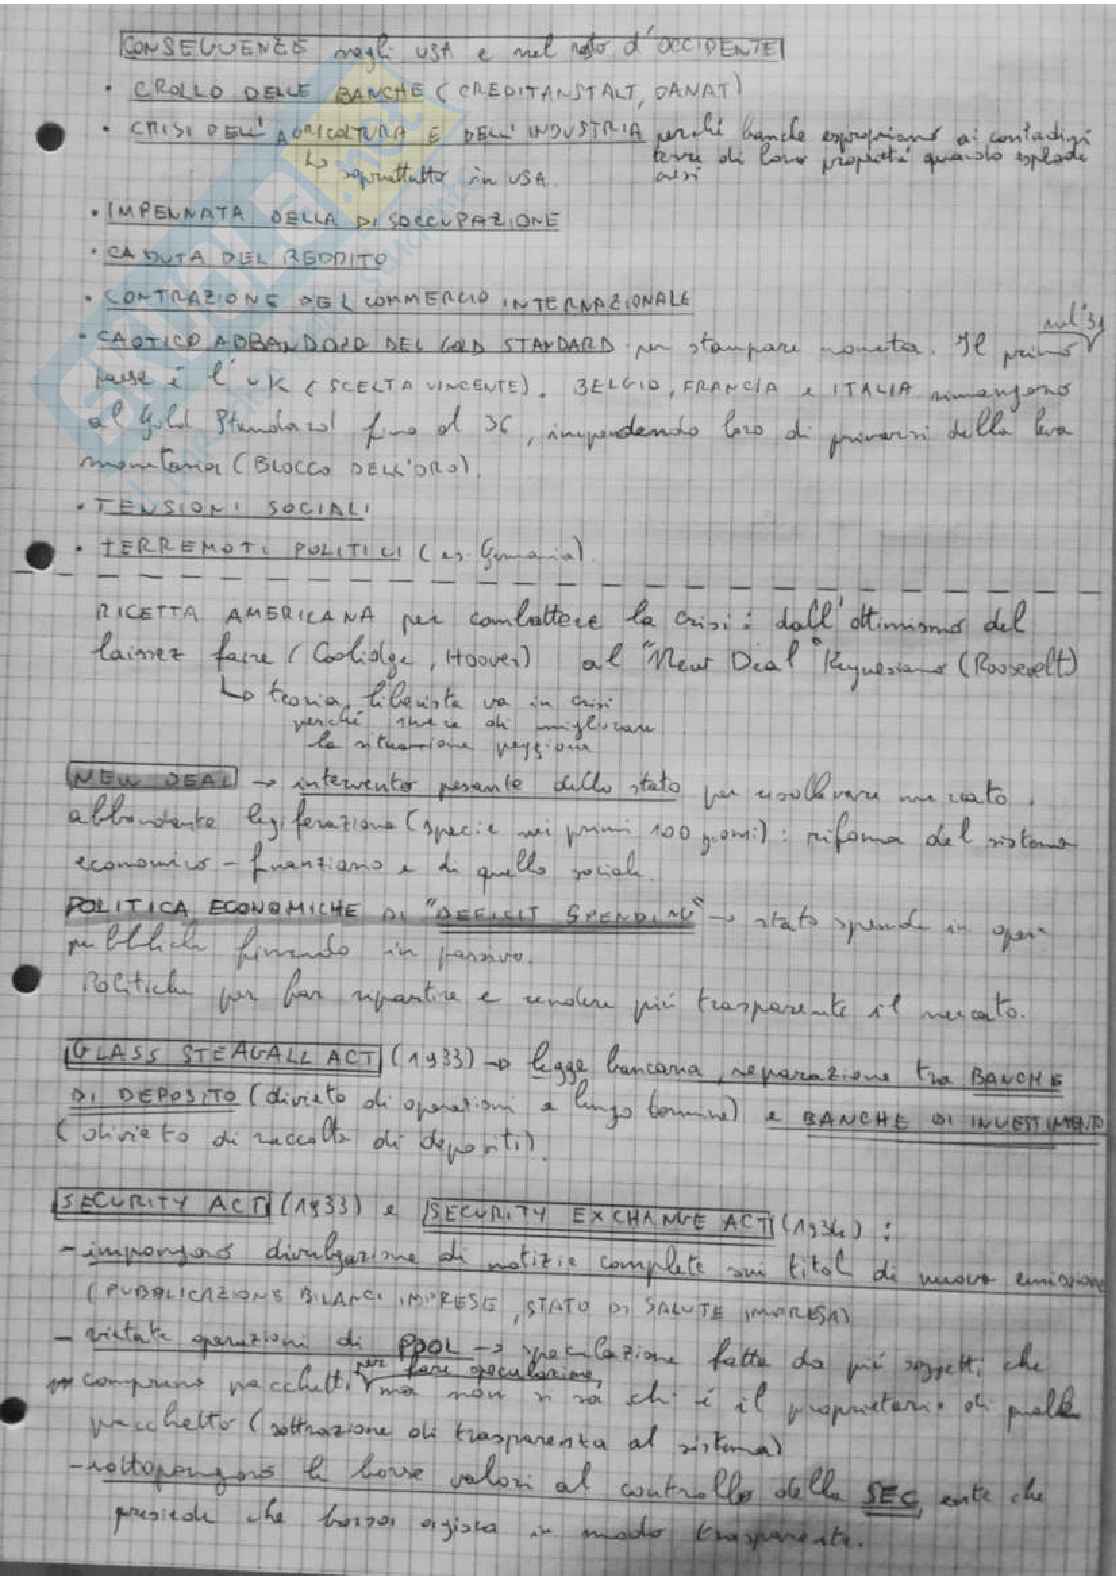 CONSEGUENZE negli USA e nel resto d'OCCIDENTE
• CROLLO DELLE BANCHE (CREDITANSTALT, DANAT)
• CRISI DELL'AGRICOLTURA E DELL'INDUSTRIA perché banche espropriano ai contadini
↳ soprattutto in USA. terre di loro proprietà quando esplode
crisi
• IMPENNATA DELLA DISOCCUPAZIONE
• CADUTA DEL REDDITO
• CONTRAZIONE DEL COMMERCIO INTERNAZIONALE
• CAOTICO ABBANDONO DEL GOLD STANDARD per stampare moneta. Il primo nel '31
paese è l'UK (SCELTA VINCENTE). BELGIO, FRANCIA e ITALIA rimangono
al Gold Standard fino al 36, impedendo loro di privarsi della leva
monetaria (BLOCCO DELL'ORO).
• TENSIONI SOCIALI
• TERREMOTI POLITICI (es. Germania).
RICETTA AMERICANA per combattere la crisi: dall'ottimismo del
laissez faire (Coolidge, Hoover) al "New Deal" Keynesiano (Roosevelt)
↳ teoria liberista va in crisi
perché invece di migliorare
la situazione peggiora
NEW DEAL → intervento pesante dello stato per risollevare mercato.
abbondante legiferazione (specie nei primi 100 giorni): riforma del sistema
economico - finanziario e di quello sociale.
POLITICA ECONOMICHE DI "DEFICIT SPENDING" → stato spende in opere
pubbliche finendo in passivo.
Politiche per far ripartire e rendere più trasparente il mercato.
GLASS STEAGALL ACT (1933) → legge bancaria, separazione tra BANCHE
DI DEPOSITO (divieto di operazioni a lungo termine) e BANCHE DI INVESTIMENTO
(divieto di raccolta di depositi).
SECURITY ACT (1933) e SECURITY EXCHANGE ACT (1934):
- impongono divulgazione di notizie complete sui titoli di nuova emissione
(PUBBLICAZIONE BILANCI IMPRESE, STATO DI SALUTE IMPRESA)
- vietate operazioni di POOL → speculazione fatta da più soggetti che
comprano pacchetti per fare speculazione, ma non si sa chi è il proprietario di quale
pacchetto (sottrazione di trasparenza al sistema)
- sottopongono le borse valori al controllo della SEC, ente che
presiede che borsa agisca in modo trasparente.